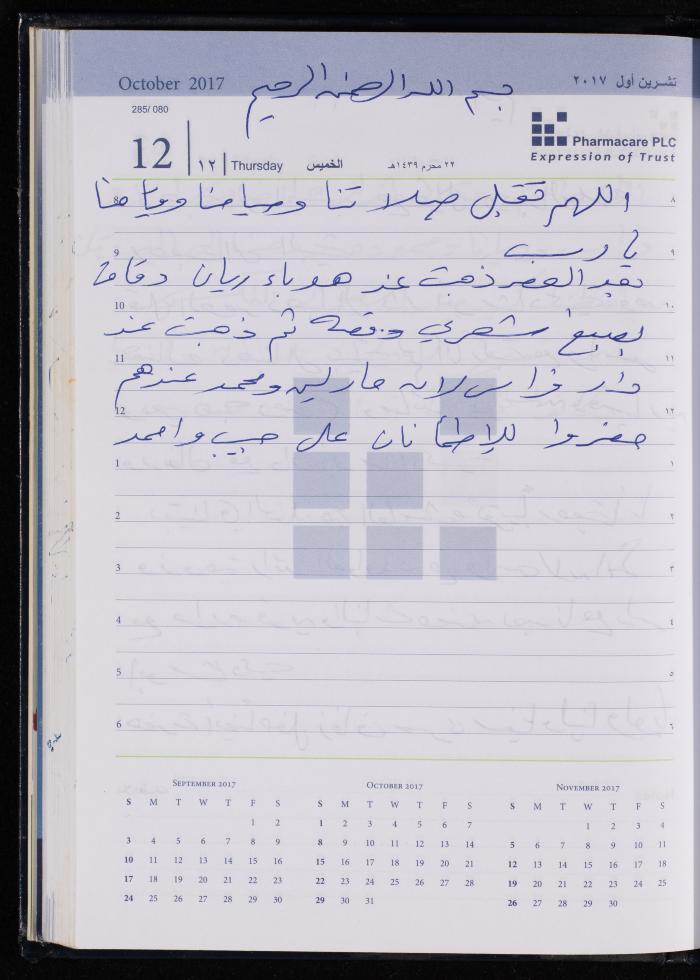 October 2017
تشرين أول ٢٠١٧
بسم الله الرحمن الرحيم
285/ 080
12
١٢
Thursday
الخميس
٢٢ محرم ١٤٣٩هـ
Pharmacare PLC
Expression of Trust
اللهم تقبل صلاتنا وصيامنا وقيامنا
يا رب
بعد العصر ذهبت عند هوباء ريان
لصبغ شعري وقصه ثم ذهبت عند
دار فراس لانه مارلين ومحمد عندهم
حضروا للإطمأنان على حبيب واحمد
8 ٨
9 ٩
10 ١٠
11 ١١
12 ١٢
1 ١
2 ٢
3 ٣
4 ٤
5 ٥
6 ٦
SEPTEMBER 2017
S M T W T F S
1 2
3 4 5 6 7 8 9
10 11 12 13 14 15 16
17 18 19 20 21 22 23
24 25 26 27 28 29 30
OCTOBER 2017
S M T W T F S
1 2 3 4 5 6 7
8 9 10 11 12 13 14
15 16 17 18 19 20 21
22 23 24 25 26 27 28
29 30 31
NOVEMBER 2017
S M T W T F S
1 2 3 4
5 6 7 8 9 10 11
12 13 14 15 16 17 18
19 20 21 22 23 24 25
26 27 28 29 30